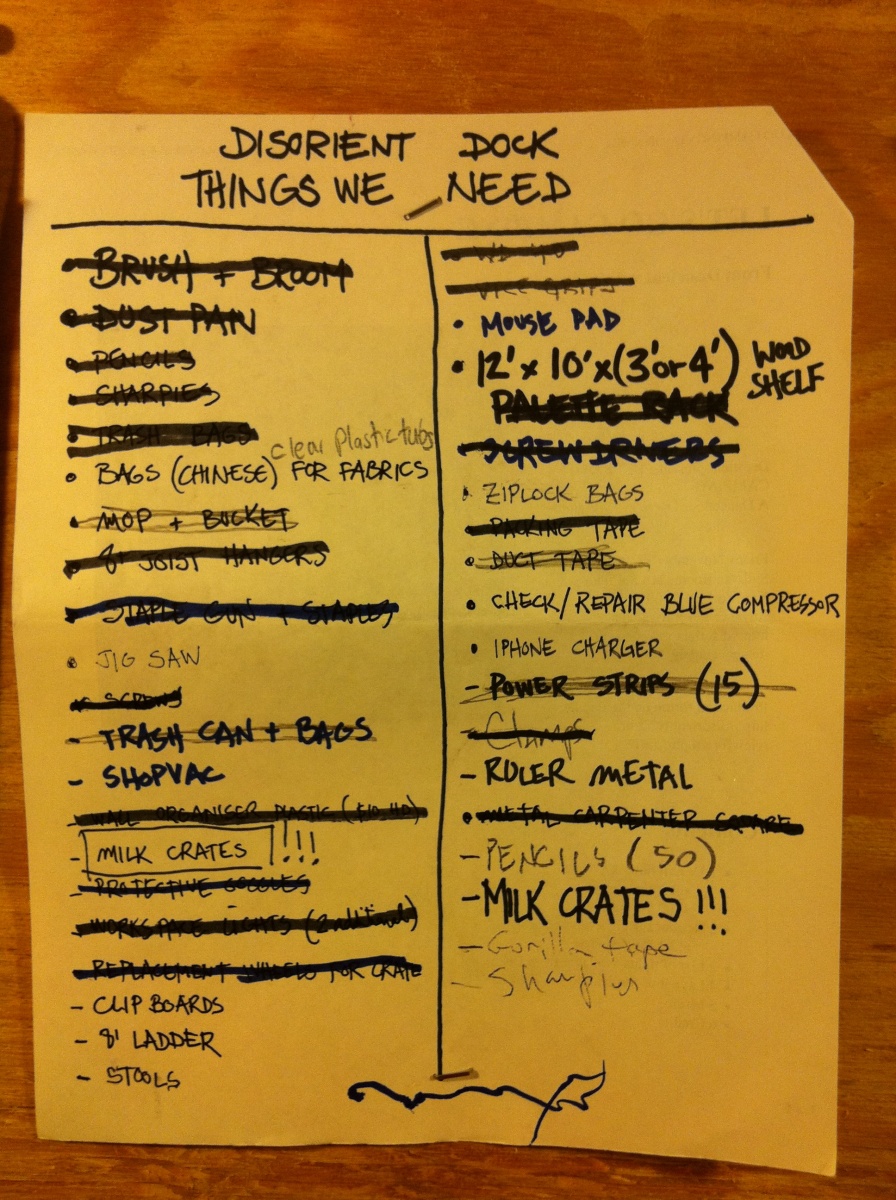 DISORIENT DOCK
THINGS WE NEED
BRUSH + BROOM
DUST PAN
PENCILS
SHARPIES
TRASH BAGS
clear Plastic tubs
BAGS (CHINESE) FOR FABRICS
MOP + BUCKET
8" JOIST HANGERS
STAPLE GUN + STAPLES
JIG SAW
SCREWS
- TRASH CAN + BAGS
- SHOPVAC
- WALL ORGANISER PLASTIC ($10, HD)
- MILK CRATES !!!
- PROTECTIVE GOGGLES
- WORKSPACE LIGHTS
- REPLACEMENT WHEELS FOR CRATE
- CLIP BOARDS
- 8' LADDER
- STOOLS
VICE GRIPS
• MOUSE PAD
• 12' x 10' x (3' or 4') WOOD SHELF
PALETTE RACK
• SCREW DRIVERS
• ZIPLOCK BAGS
• PACKING TAPE
• DUCT TAPE
• CHECK/REPAIR BLUE COMPRESSOR
• IPHONE CHARGER
- POWER STRIPS (15)
- Clamps
- RULER METAL
• METAL CARPENTER SQUARE
- PENCILS (50)
- MILK CRATES !!!
- Gorilla tape
- Sharpies